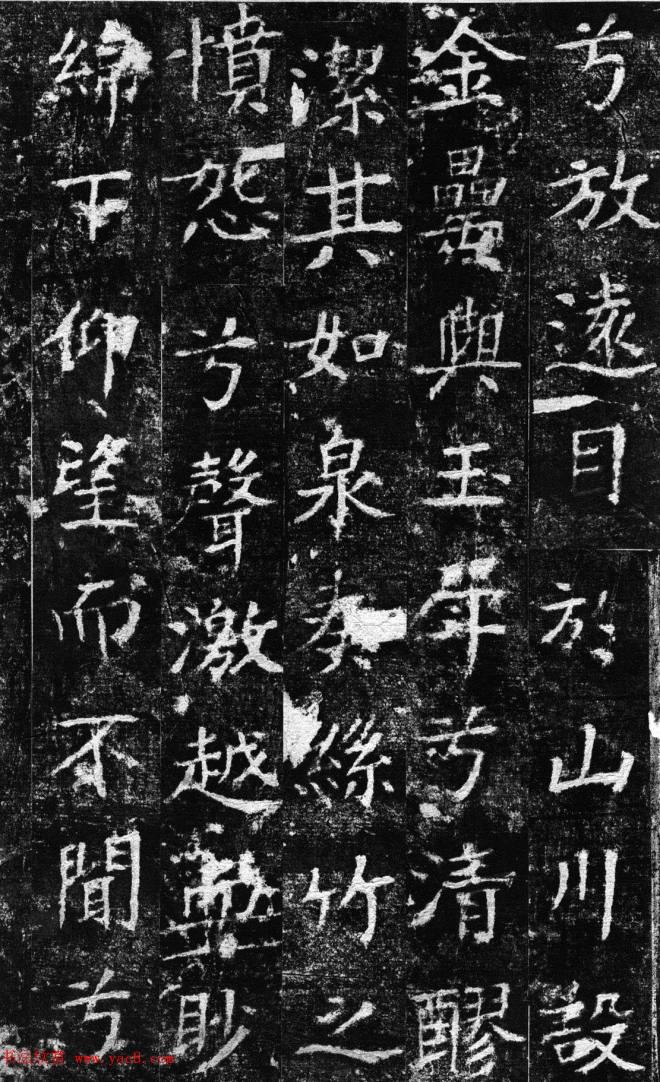 兮放遠目於山川設
金罍與玉斝兮清醪
潔其如泉奏絲竹之
憤怨兮聲激越眇
綿下仰望而不聞兮
www.yac8.com